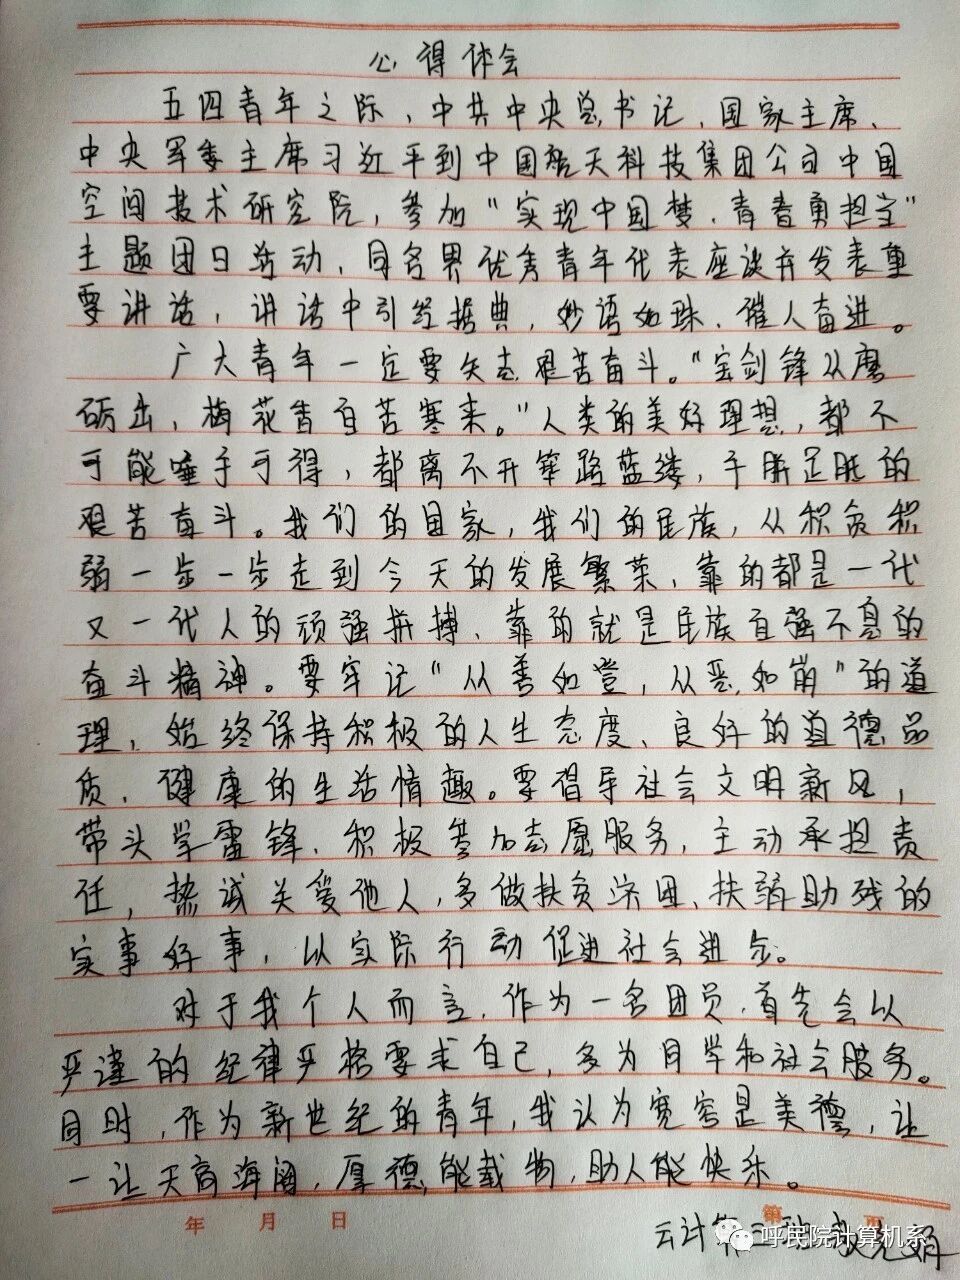 心得体会
五四青年之际，中共中央总书记、国家主席、
中央军委主席习近平到中国航天科技集团公司中国
空间技术研究院，参加"实现中国梦、青春勇担当"
主题团日活动，同各界优秀青年代表座谈并发表重
要讲话，讲话中引经据典，妙语如珠，催人奋进。
广大青年一定要矢志艰苦奋斗。"宝剑锋从磨
砺出，梅花香自苦寒来。"人类的美好理想，都不
可能唾手可得，都离不开筚路蓝缕，手胼足胝的
艰苦奋斗。我们的国家，我们的民族，从积贫积
弱一步一步走到今天的发展繁荣，靠的都是一代
又一代人的顽强拼搏，靠的就是民族自强不息的
奋斗精神。要牢记"从善如登，从恶如崩"的道
理，始终保持积极的人生态度、良好的道德品
质、健康的生活情趣。要倡导社会文明新风，
带头学雷锋，积极参加志愿服务，主动承担责
任，热诚关爱他人，多做扶贫济困、扶弱助残的
实事好事，以实际行动促进社会进步。
对于我个人而言，作为一名团员，首先会以
严谨的纪律严格要求自己，多为同学和社会服务。
同时，作为新世纪的青年，我认为宽容是美德，让
一让天高海阔，厚德能载物，助人能快乐。
年 月 日 第 页
云计算二班
呼民院计算机系